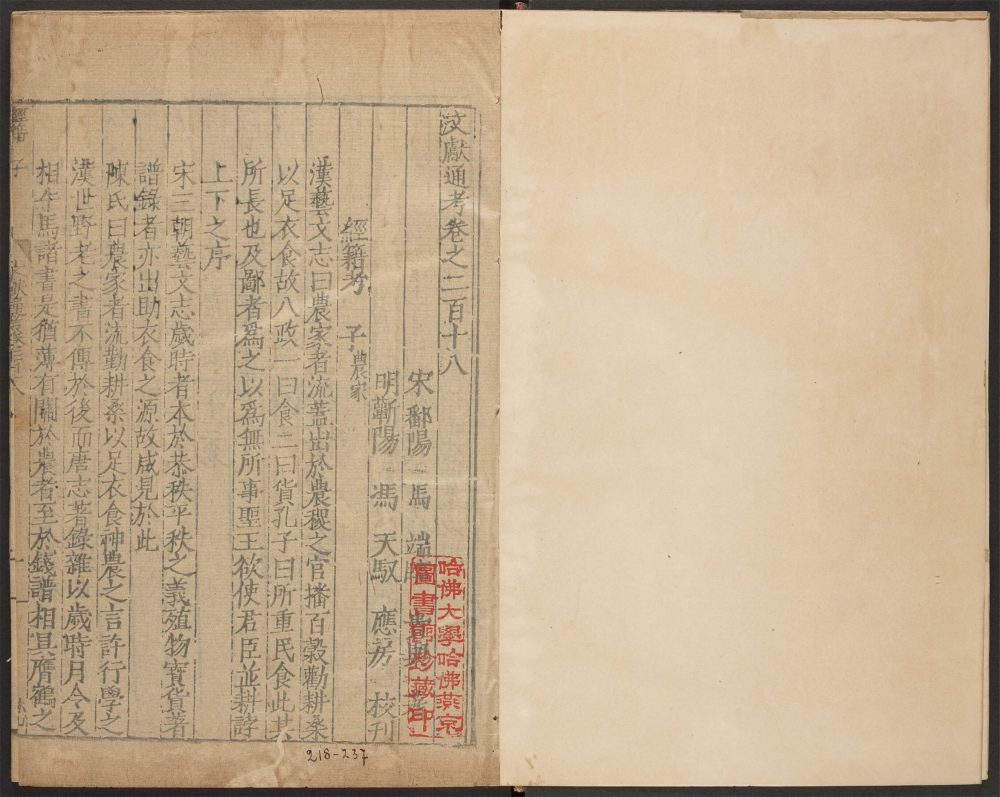 文獻通考卷之二百十八
宋鄱陽馬端臨貴與著
明蘄陽馮天馭應房校刊
經籍考 子 農家
漢藝文志曰農家者流蓋出於農稷之官播百穀勸耕桑
以足衣食故八政一曰食二曰貨孔子曰所重民食此其
所長也及鄙者爲之以爲無所事聖王欲使君臣並耕誖
上下之序
宋三朝藝文志歲時者本於恭秩平秩之義殖物寶貨著
譜錄者亦出助衣食之源故咸見於此
陳氏曰農家者流勤耕桑以足衣食神農之言許行學之
漢世野老之書不傳於後而唐志著錄雜以歲時月令及
相牛馬諸書是猶薄有關於農者至於錢譜相貝鷹鶴之
經籍 子
哈佛大學哈佛燕京
圖書館珍藏印
218-237